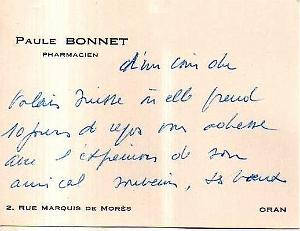 PAULE BONNET
PHARMACIEN
d'un coin du
Valais Suisse où elle prend
10 jours de repos vous adresse
avec l'expression de son
amical souvenir, ses
2, RUE MARQUIS DE MORÈS ORAN